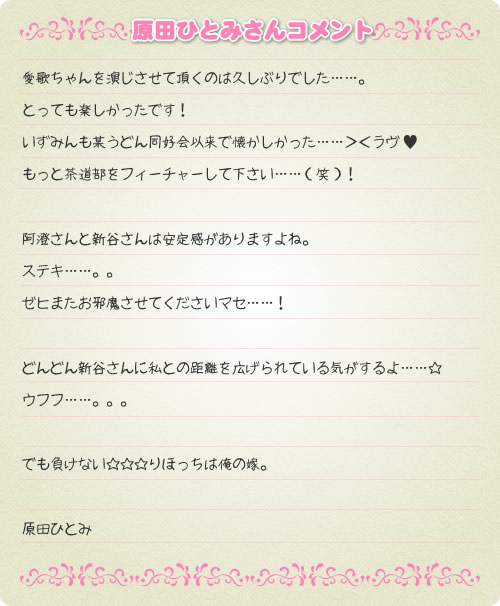 原田ひとみさんコメント
愛歌ちゃんを演じさせて頂くのは久しぶりでした……。
とっても楽しかったです！
いずみんも某うどん同好会以来で懐かしかった……＞＜ラヴ♥
もっと茶道部をフィーチャーして下さい……（笑）！
阿澄さんと新谷さんは安定感がありますよね。
ステキ……。。
ゼヒまたお邪魔させてくださいマセ……！
どんどん新谷さんに私との距離を広げられている気がするよ……☆
ウフフ……。。。
でも負けない☆☆☆りほっちは俺の嫁。
原田ひとみ